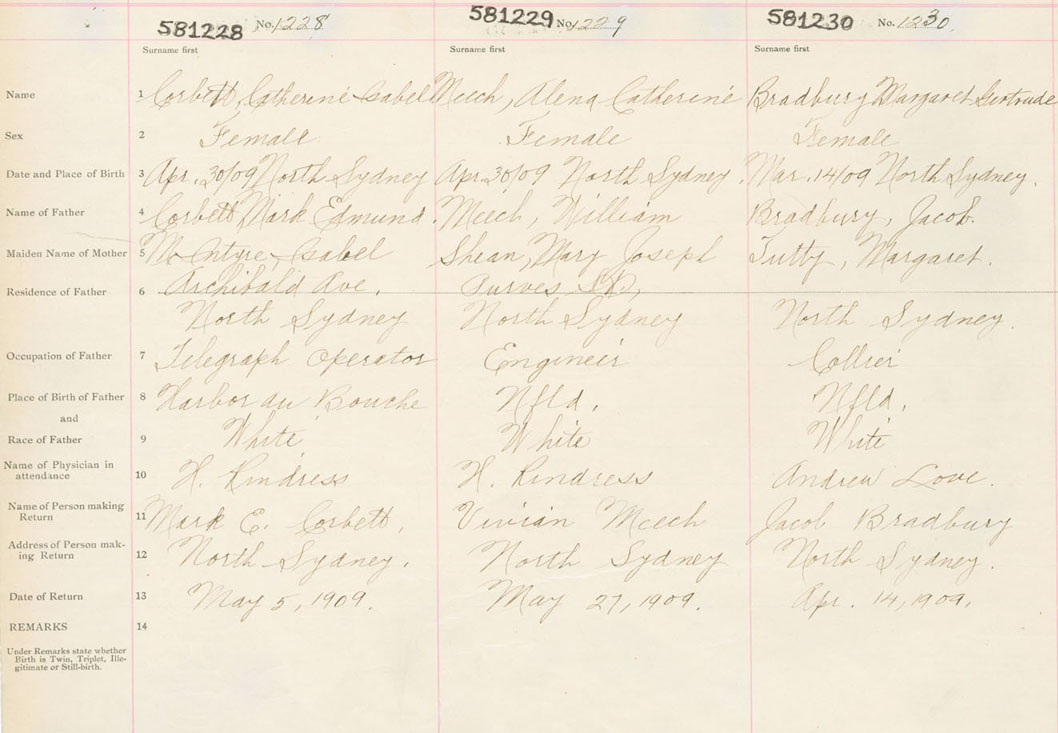 581228 No. 1228 581229 No. 1229 581230 No. 1230.
Surname first Surname first Surname first
Name 1 Corbett, Catherine Isabel Meech, Alena Catherine Bradbury Margaret Gertrude
Sex 2 Female Female Female
Date and Place of Birth 3 Apr. 30/09 North Sydney Apr. 30/09 North Sydney. Mar. 14/09 North Sydney.
Name of Father 4 Corbett, Mark Edmund. Meech, William Bradbury, Jacob.
Maiden Name of Mother 5 McIntyre, Isabel Shean, Mary Joseph Tutty, Margaret.
Residence of Father 6 Archibald Ave. Purves
North Sydney North Sydney North Sydney.
Occupation of Father 7 Telegraph Operator Engineer Collier
Place of Birth of Father 8 Harbor au Bouche Nfld. Nfld.
and
Race of Father 9 White White White
Name of Physician in
attendance 10 H. Rindress H. Rindress Andrew Love.
Name of Person making
Return 11 Mark E. Corbett. Vivian Meech Jacob Bradbury
Address of Person mak-
ing Return 12 North Sydney. North Sydney North Sydney.
Date of Return 13 May 5, 1909. May 27, 1909. Apr. 14, 1909.
REMARKS 14
Under Remarks state whether
Birth is Twin, Triplet, Ille-
gitimate or Still-birth.